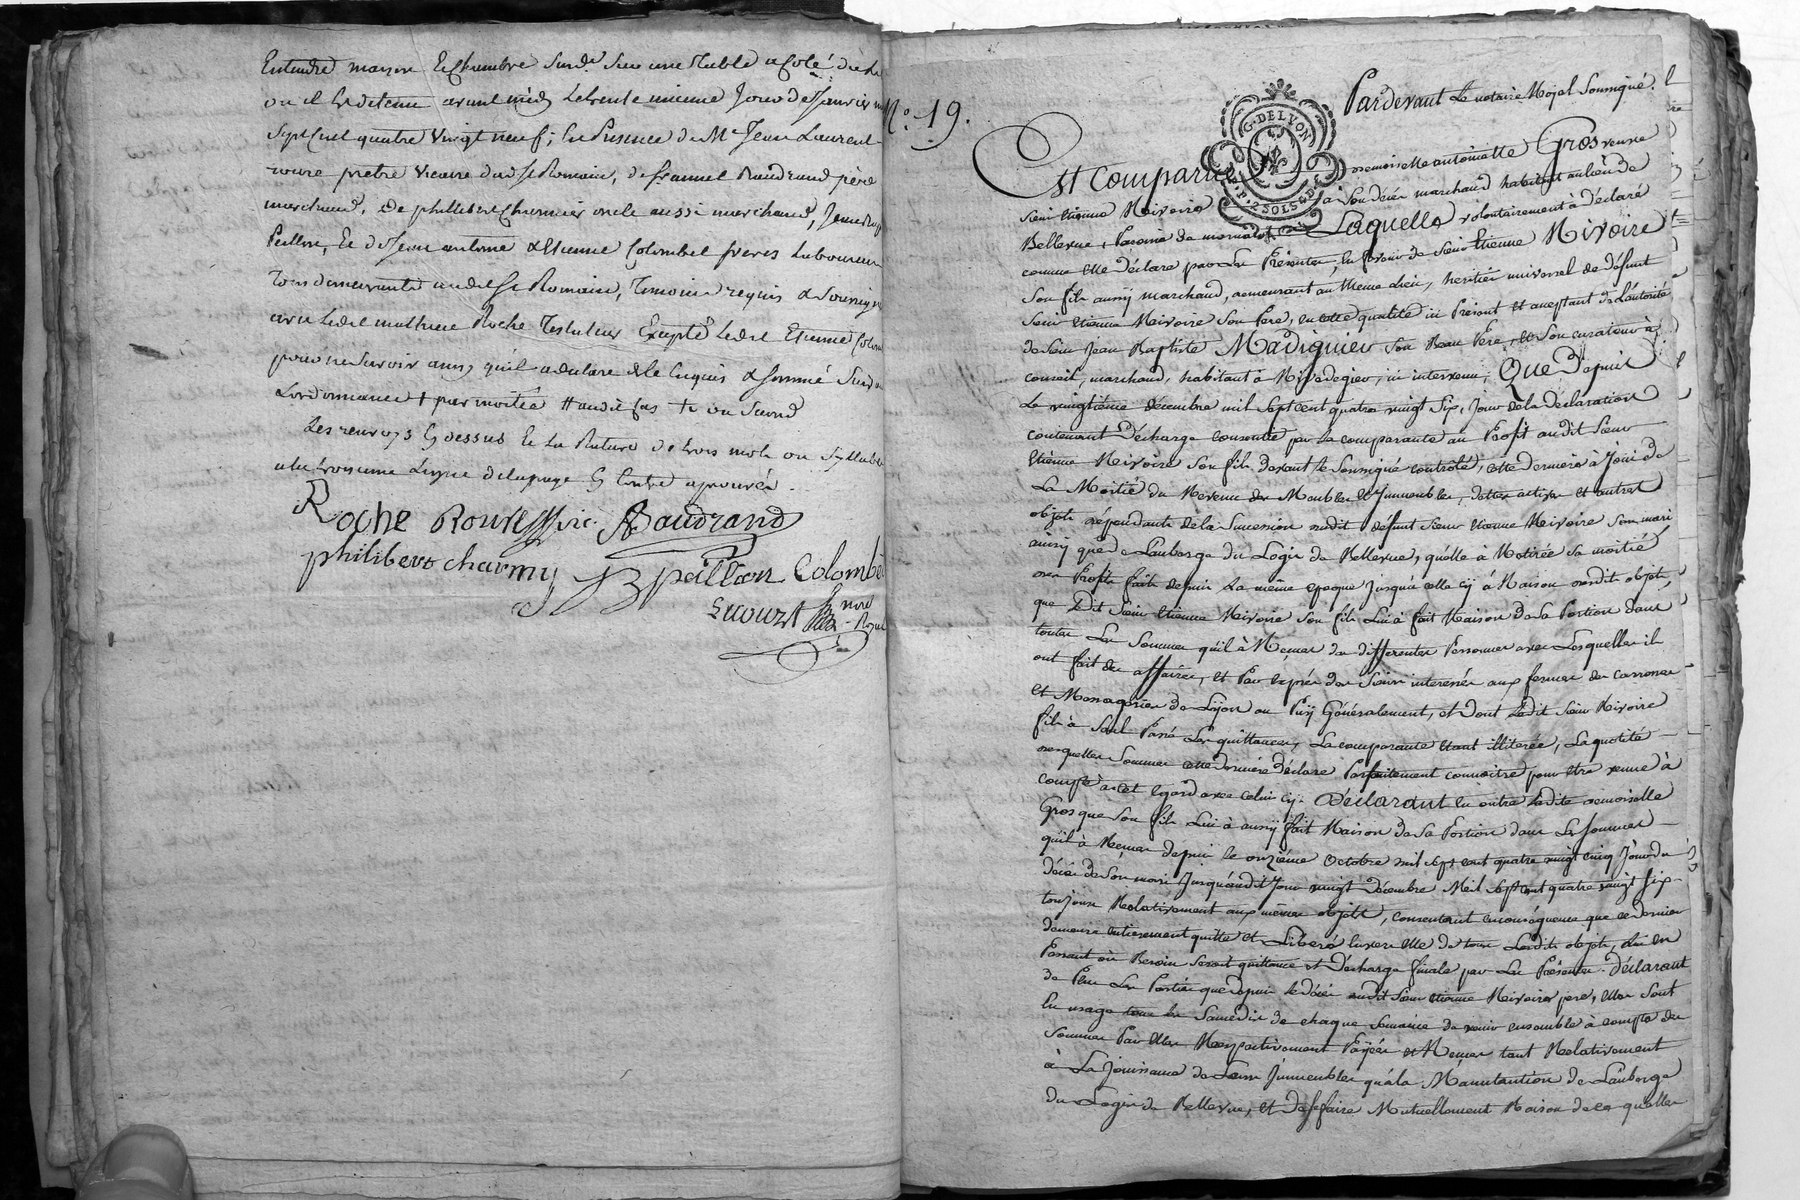 Entendre maison & chambre Sur une Table a coté du lit
ou il est detenu avant midy Le trente unieme Jour de Janvier mil
Sept Cent quatre vingt neuf; En Presence de Mr Jean Laurent
roure pretre vicaire dudit St Romain, de Baudrand père
marchand, De philibert Charmier oncle aussi marchand, Jean Bap
Peillon, & de Jean antoine & Etienne Colombet freres Laboureurs
tous demeurants audit St Romain, Temoins requis & Soussignés
avec ledit mathieu Roche Testateur Excepté ledit Etienne Colom
pour ne Savoir ainsy qu'il a declaré de ce Enquis & Sommé Suivant
L'ordonnance
Les renvoys cy dessus & La Rature de trois mots ou Syllabes
a la troisieme Ligne de la page cy Contre aprouvés
Roche Roure Vic. Baudrand
philibert charmy JB peillon Colombet
Nore Royal
No. 19.
G. DE LYON
2 SOLS 8 D
Pardevant Le notaire Royal Soussigné.
Est Comparue Demoiselle antoinette Gros veuve
Sieur Etienne Rivoire à Son décès marchand habitant au lieu de
Bellevue, Paroisse de Laquelle volontairement à déclaré
comme Elle déclare par Les Présentes, En faveur de Sieur Etienne Rivoire
Son fils aussy marchand, demeurant au Meme Lieu, heritier universel de défunt
Sieur Etienne Rivoire Son Pere, en cette qualité ici Présent et acceptant de L'autorité
de Sieur Jean Baptiste Madignier Son Beau Pere, et Son curateur à
conseil, marchand, habitant à Rivedegier, ici intervenu; Que Depuis
Le vingtième décembre mil Sept cent quatre vingt Six, Jour de la Déclaration
contenant Décharge consentie par la comparante au Profit dudit Sieur
Etienne Rivoire Son fils devant le Soussigné controlée, cette derniere à Joui de
La Moitié du Revenu des Meubles & Immeubles, dettes actives et autres
objets dépendants de la Succession dudit défunt Sieur Etienne Rivoire Son mari
ainsy que de L'auberge du Logis de Bellevue, qu'elle à Retirée Sa moitié
des Profits faits depuis La même epoque Jusqu'a celle cy à Raison desdits objets,
que Ledit Sieur Etienne Rivoire Son fils Lui à fait Raison de Sa Portion dans
toutes Les Sommes qu'il à Reçues de differentes Personnes avec Lesquelles ils
ont fait des affaires, et Par Exprès des Sieurs interessés aux fermes des carrosses
et Messageries de Lyon au Puy Généralement, et Dont Ledit Sieur Rivoire
fils à Seul Passé Les quittances, La comparante Etant illiterée, La quotité
desquelles Sommes cette derniere Déclare Parfaitement connoitre pour Etre venue à
compte à cet Egard avec Celui cy. Déclarant En outre Ladite demoiselle
Gros que Son fils Lui à aussy fait Raison de Sa Portion dans Les Sommes
qu'il à Reçues depuis le onzième octobre mil Sept cent quatre vingt cinq Jour du
décès de Son mari Jusqu'audit Jour vingt décembre Mil Sept cent quatre vingt Six
toujours Relativement aux mêmes objets, consentant en conséquence que ce dernier
demeure entierement quitte et Libéré Envers Elle de tous Lesdits objets, Lui en
Passant où Besoin Seroit quittance et Décharge finale par Les Présentes. Déclarant
de Plus Les Parties que depuis le décès dudit Sieur Etienne Rivoire pere, Elles Sont
En usage tous les Samedis de chaque Semaine de venir ensemble à compte des
Sommes Par Elles Respectivement Payées et Reçues tant Relativement
à La Jouissance de Leurs Immeubles qu'à la Manutantion de L'auberge
du Logis de Bellevue, et de Se faire Mutuellement Raison de ce qu'elles